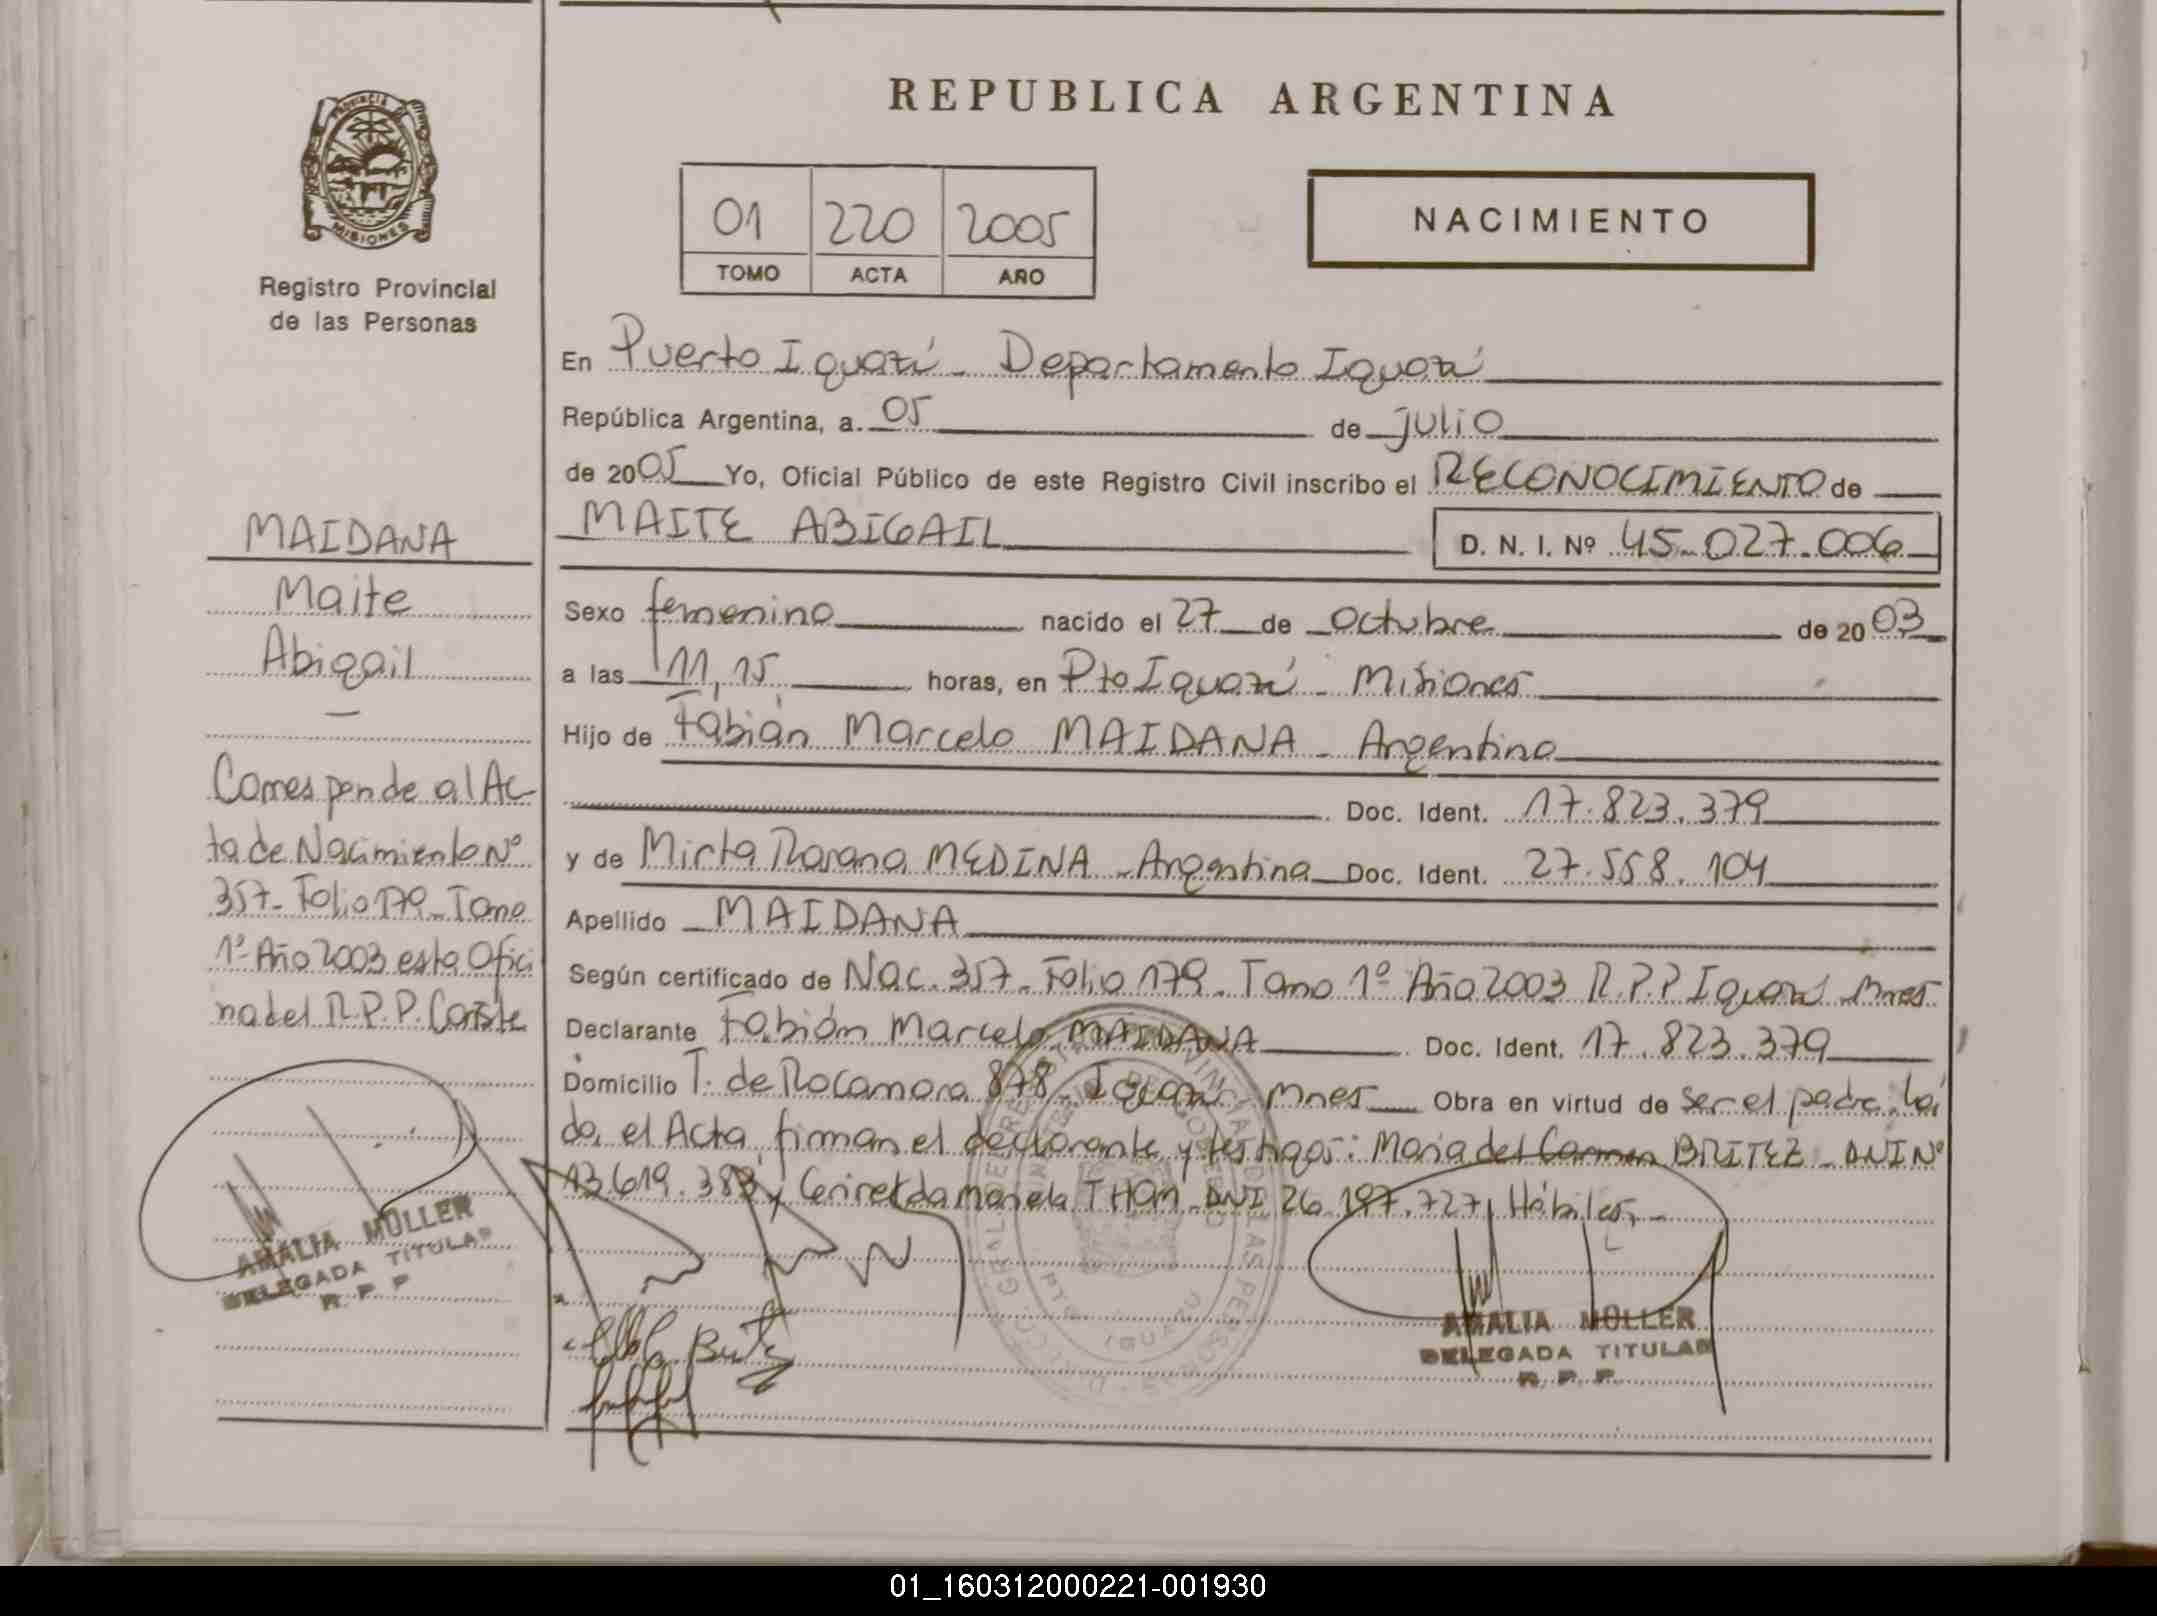 REPUBLICA ARGENTINA
PROVINCIA DE
MISIONES
Registro Provincial
de las Personas
01 220 2005
TOMO ACTA AÑO
NACIMIENTO
En Puerto Iguazú - Departamento Iguazú
República Argentina, a 05 de julio
de 2005 Yo, Oficial Público de este Registro Civil inscribo el RECONOCIMIENTO de
MAITE ABIGAIL D. N. I. Nº 45.027.006
Sexo femenino nacido el 27 de octubre de 2003
a las 11,15 horas, en Pto Iguazú - Misiones
Hijo de Fabián Marcelo MAIDANA - Argentino
Doc. Ident. 17.823.379
y de Mirta Rosana MEDINA - Argentina Doc. Ident. 27.558.104
Apellido MAIDANA
Según certificado de Nac. 357 - Folio 179 - Tomo 1º Año 2003 R.P.P Iguazú Mnes
Declarante Fabián Marcelo MAIDANA Doc. Ident. 17.823.379
Domicilio T. de Rocamora 878 - Iguazú - Mnes Obra en virtud de ser el padre. Leí
da, el Acta, firman el declarante y testigos: Maria del Carmen BRITEZ - DNI Nº
13.619.383 y THOM - DNI 26.197.727, Hábiles.-
MAIDANA
Maite
Abigail
—
Corresponde al Ac-
ta de Nacimiento Nº
357 - Folio 179 - Tomo
1º Año 2003 esta Ofici
na del R.P.P. Conste
AMALIA MÜLLER
DELEGADA TITULAR
R. P. P
AMALIA MÜLLER
DELEGADA TITULAR
R. P. P.
PTO IGUAZU
01_160312000221-001930